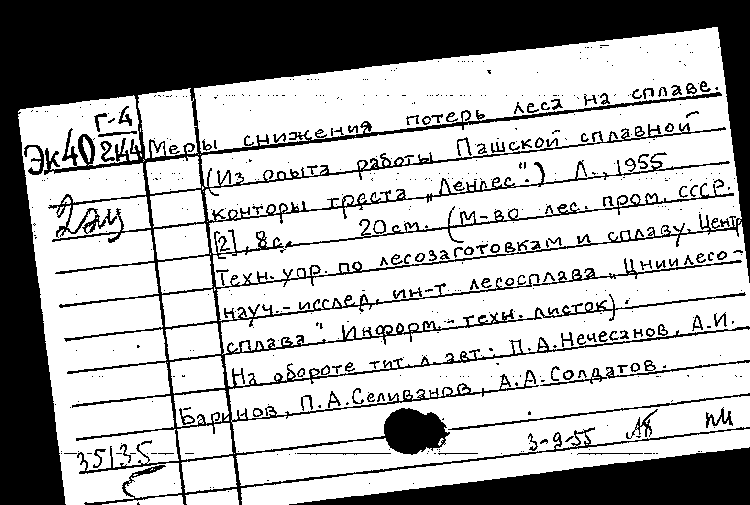 Г-4
Эк40 244
2 эц
Меры снижения потерь леса на сплаве.
(Из опыта работы Пашской сплавной
конторы треста „Ленлес".) Л., 1955.
[2], 8с. 20см. (М-во лес. пром. СССР.
Техн. упр. по лесозаготовкам и сплаву. Центр.
науч.-исслед. ин-т лесосплава „Цниилесо-
сплава". Информ.-техн. листок).
На обороте тит. л. авт.: П.А.Нечесанов, А.И.
Баринов, П.А.Селиванов, А.А.Солдатов.
35135
3-9-55